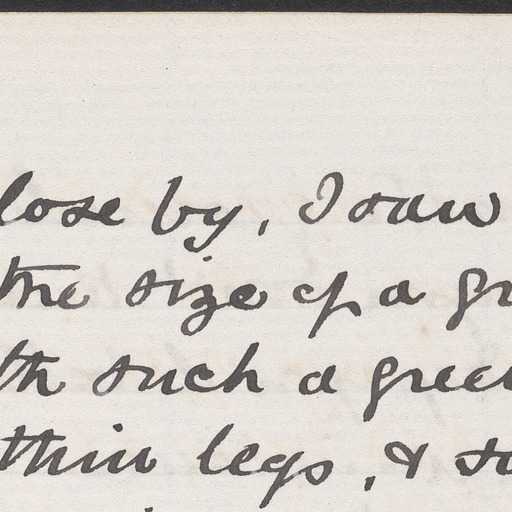 lose by, I saw
the size of a gr
th such a great
thin legs, & so